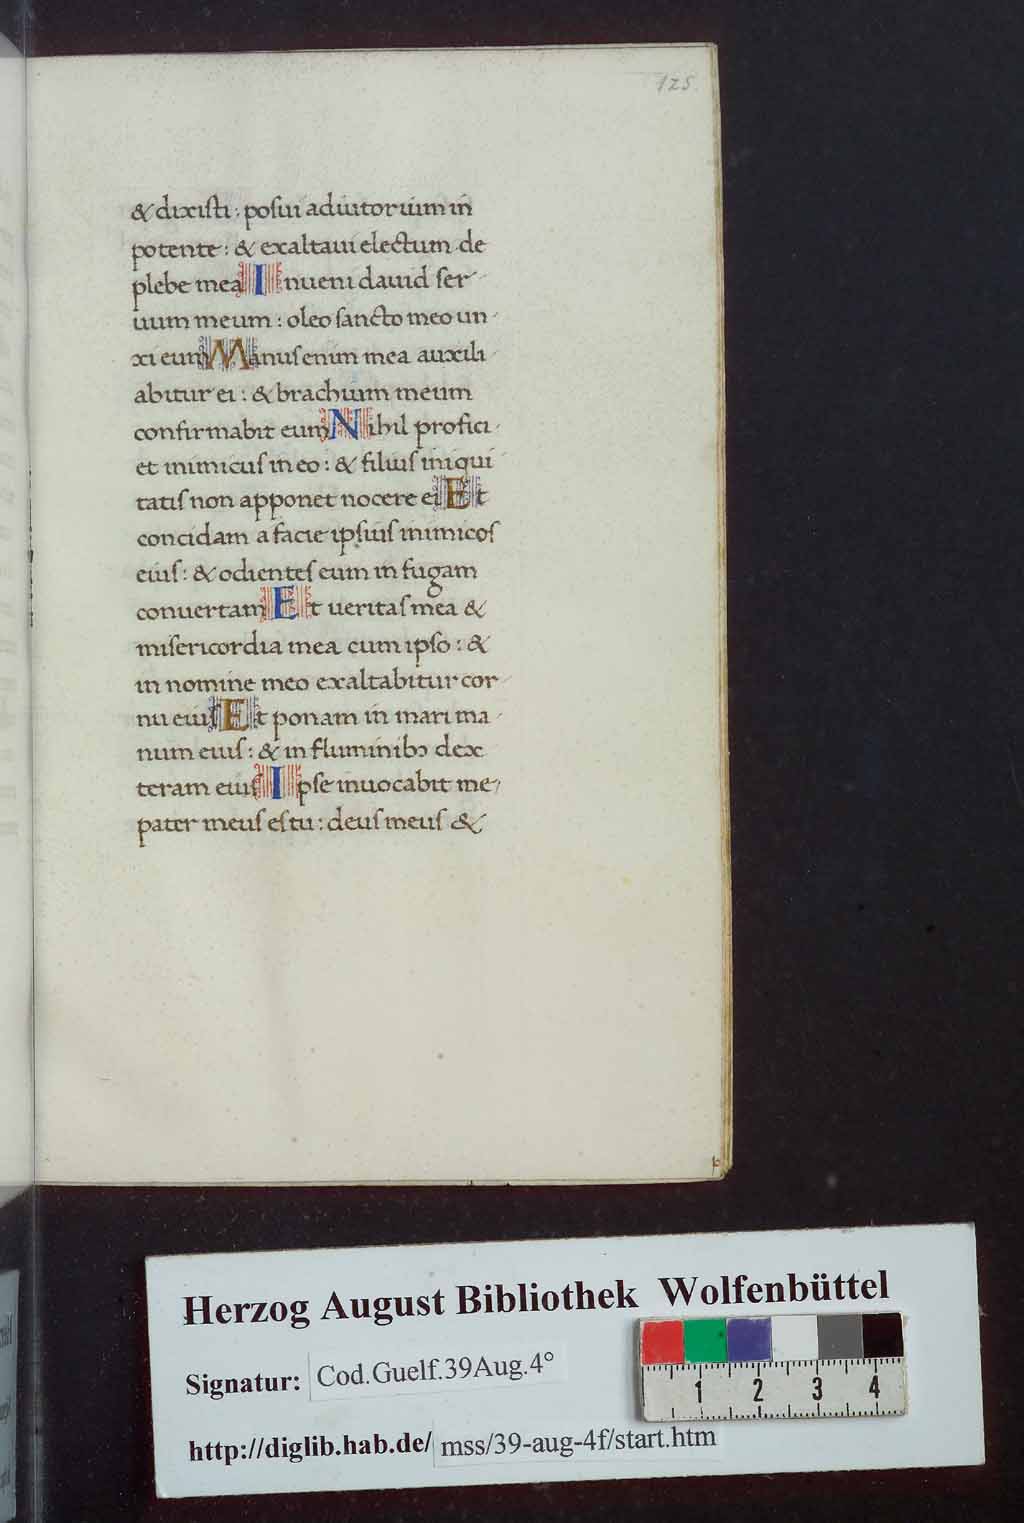 125
& dixisti : posui adiutorium in
potente : & exaltaui electum de
plebe mea Inueni dauid ser-
uum meum : oleo sancto meo un-
xi eum Manus enim mea auxili-
abitur ei : & brachium meum
confirmabit eum Nihil profici-
et inimicus in eo : & filius iniqui
tatis non apponet nocere ei Et
concidam a facie ipsius inimicos
eius : & odientes eum in fugam
conuertam Et ueritas mea &
misericordia mea cum ipso : &
in nomine meo exaltabitur cor-
nu eius Et ponam in mari ma-
num eius : & in fluminibꝫ dex
teram eius Ipse inuocabit me
pater meus es tu : deus meus &
Herzog August Bibliothek Wolfenbüttel
Signatur: Cod.Guelf.39Aug.4°
1 2 3 4
http://diglib.hab.de/ mss/39-aug-4f/start.htm